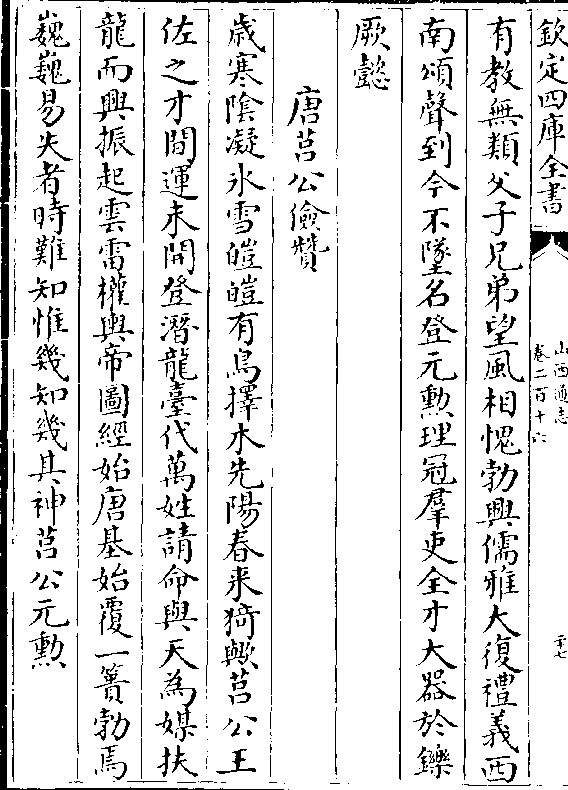 欽定四庫全書
山西通志
卷二百十六
三十七
有教無類父子兄弟望風相愧勃興儒雅大復禮義西
南頌聲到今不墜名登元勲理冠羣吏全才大器於鑠
厥懿
唐莒公儉贊
歳寒陰凝氷雪皚皚有鳥擇木先陽春来猗歟莒公王
佐之才間運未開登潛龍臺代萬姓請命與天為媒扶
龍而興振起雲雷權輿帝圖經始唐基始覆一簣勃焉
巍巍易失者時難知惟幾知幾其神莒公元勲